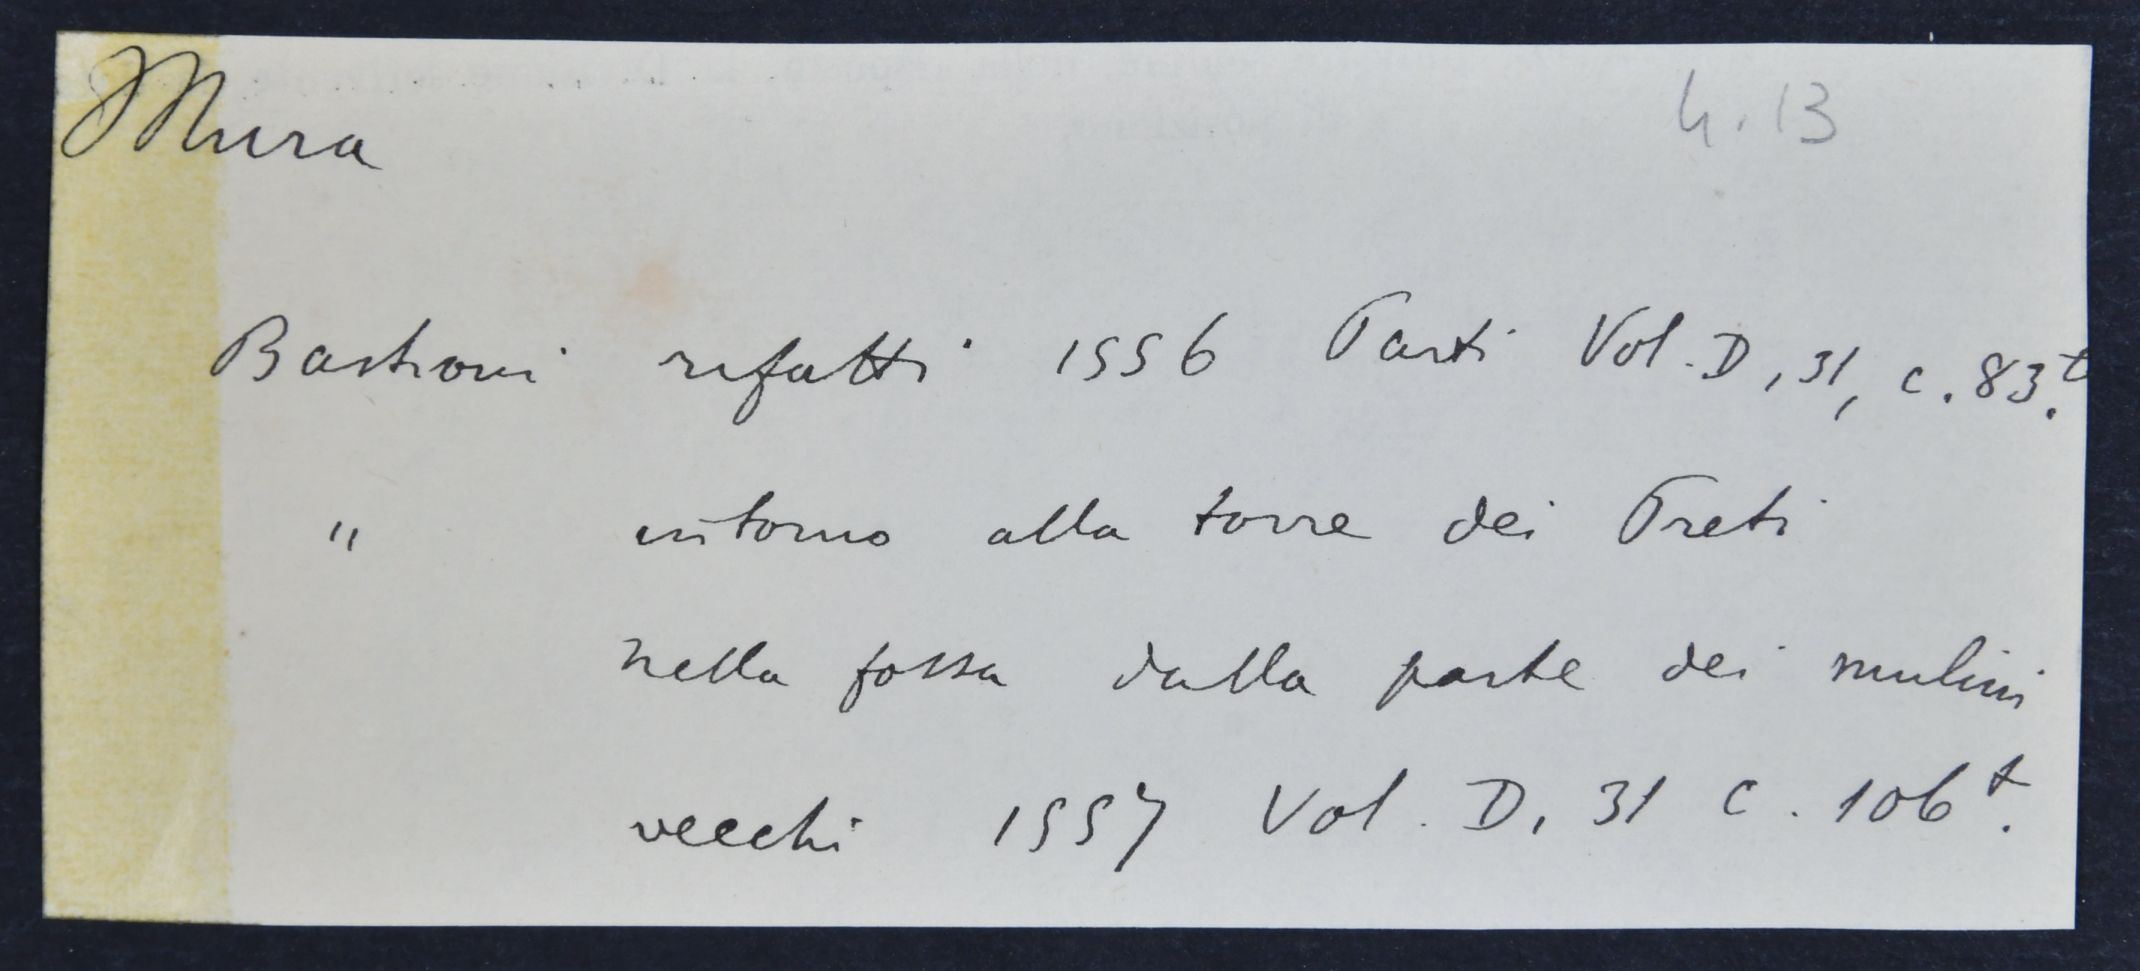 Mura
4.13
Bastioni rifatti 1556 Parti Vol. D, 31, c. 83.t
" intorno alla torre dei Preti
nella fossa dalla parte dei mulini
vecchi 1557 Vol. D, 31 c. 106t.